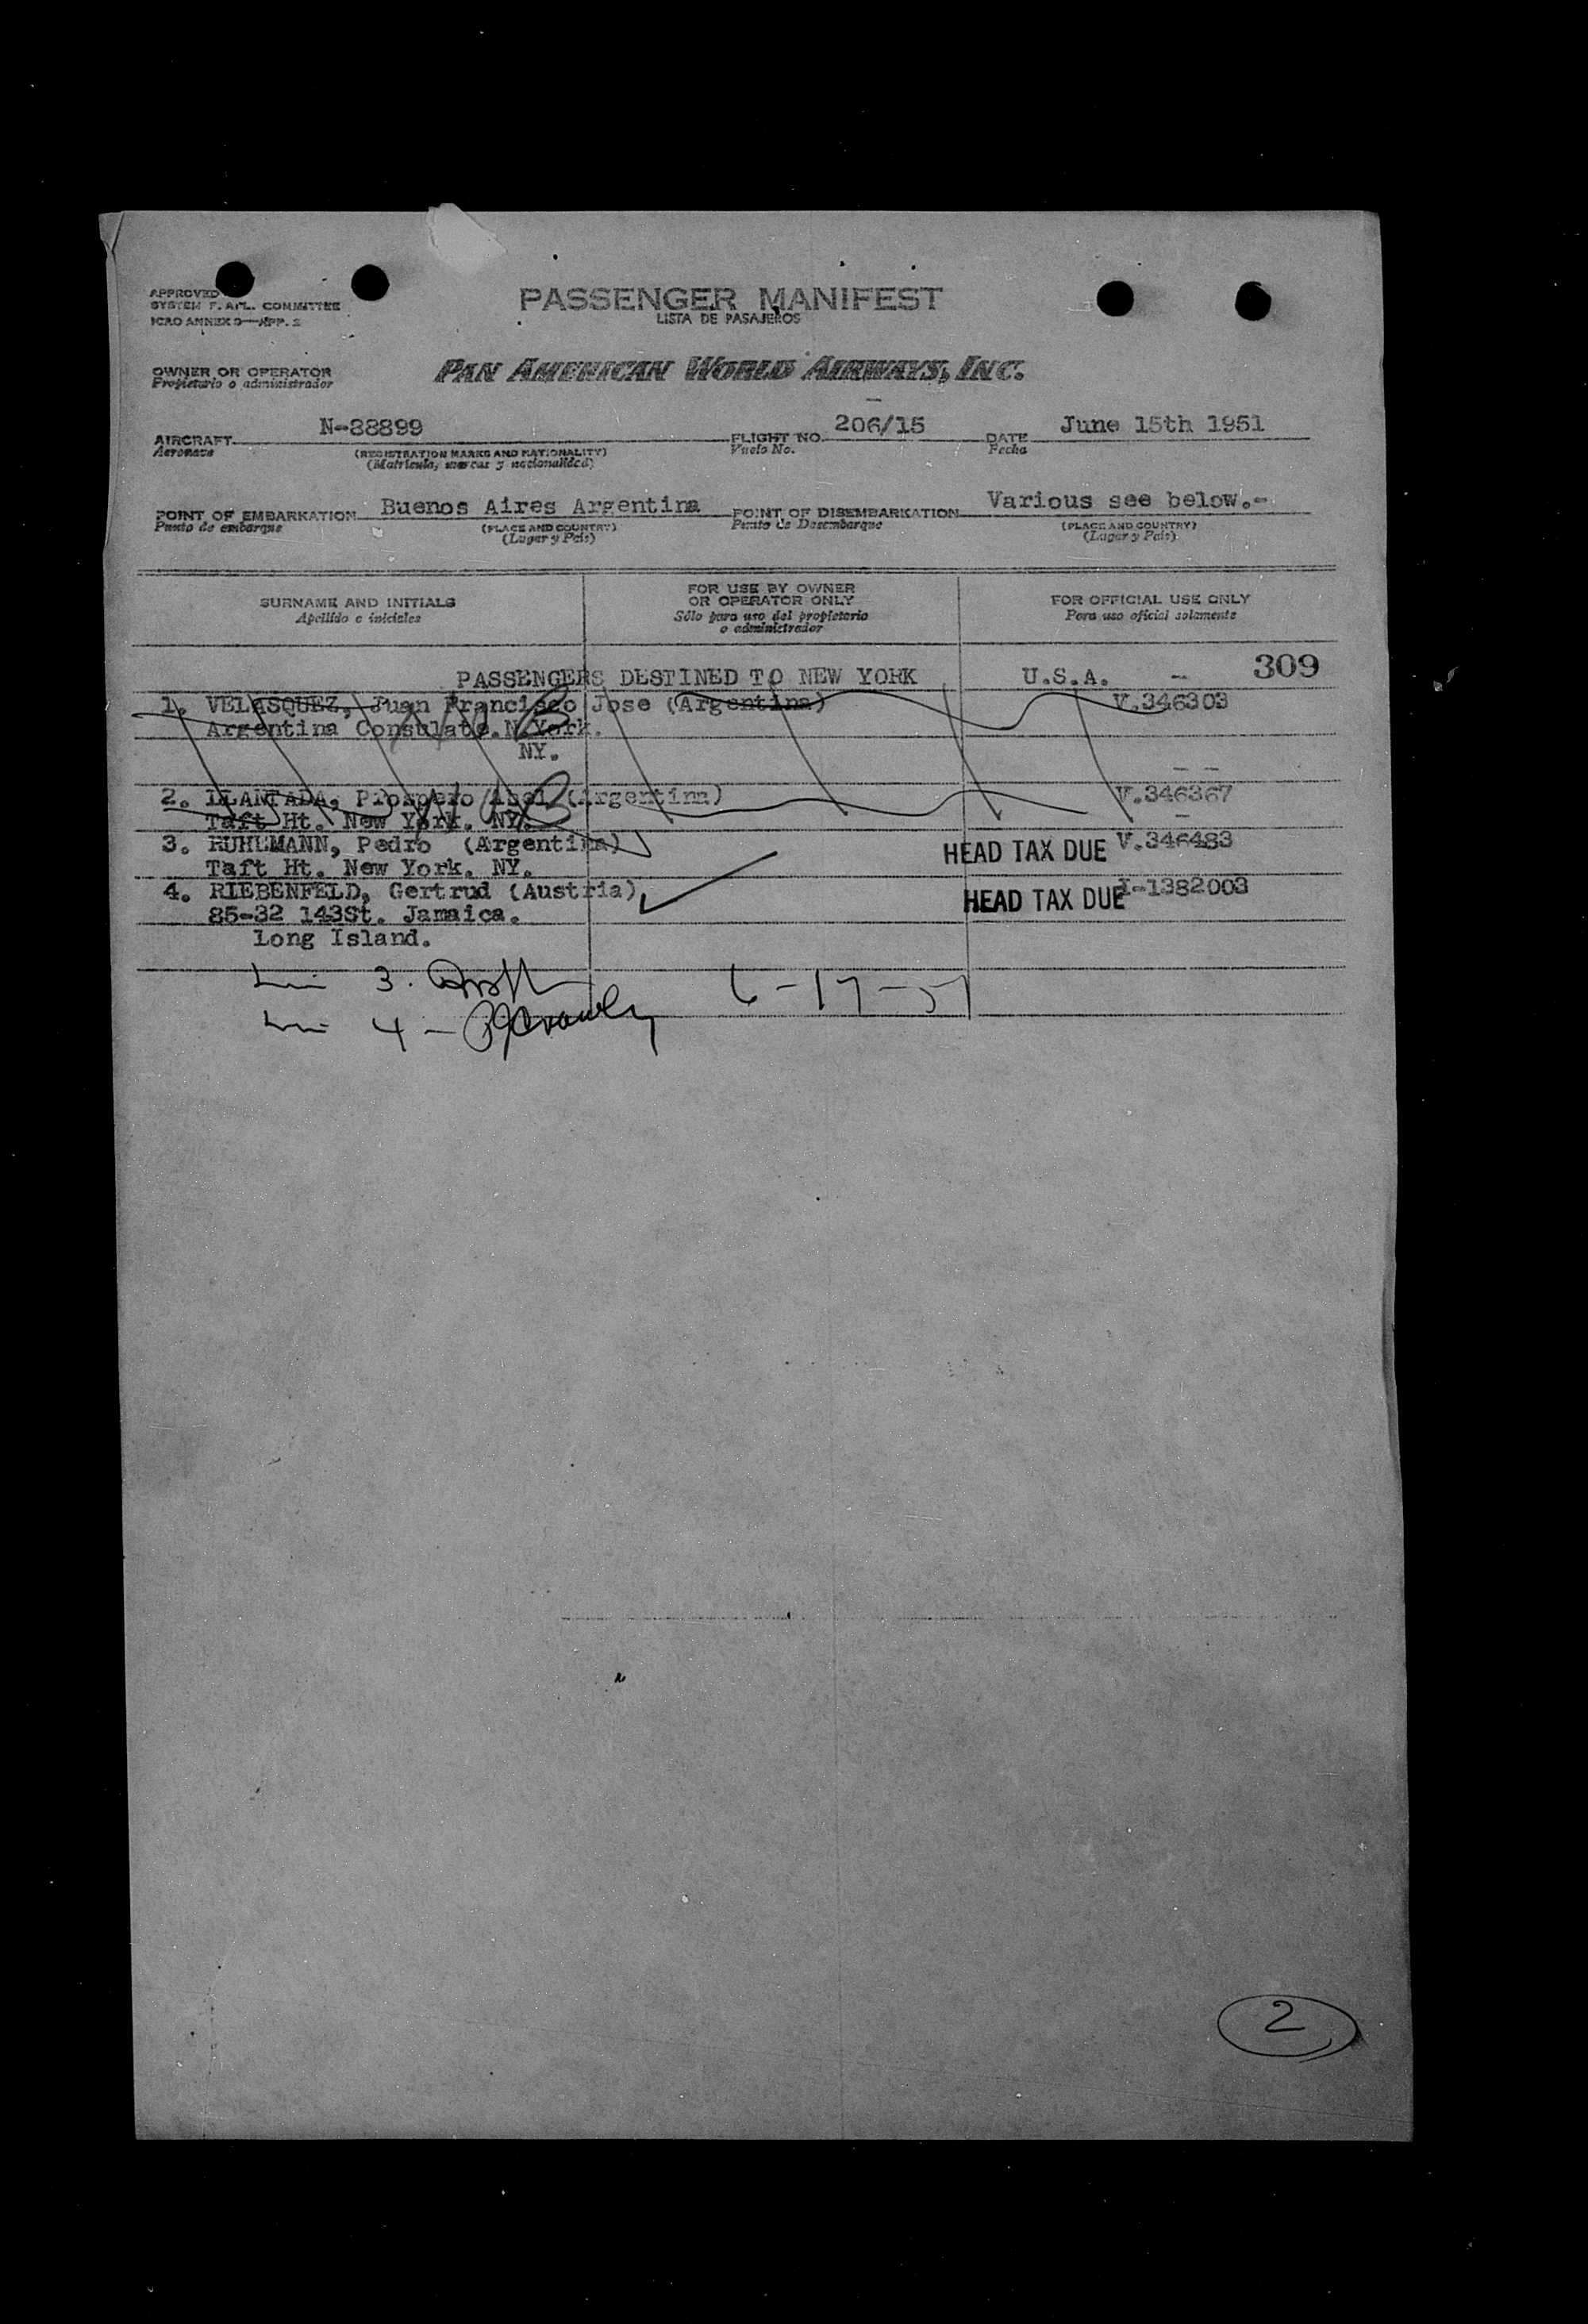 APPROVED
SYSTEM F. A/L. COMMITTEE
ICAO ANNEX 9—APP. 2
PASSENGER MANIFEST
LISTA DE PASAJEROS
OWNER OR OPERATOR
Propietario o administrador
PAN AMERICAN WORLD AIRWAYS, INC.
AIRCRAFT N-88899 FLIGHT NO. 206/15 DATE June 15th 1951
Aeronave (REGISTRATION MARKS AND NATIONALITY) Vuelo No. Fecha
(Matricula, marcas y nacionalidad)
POINT OF EMBARKATION Buenos Aires Argentina POINT OF DISEMBARKATION Various see below.-
Punto de embarque (PLACE AND COUNTRY) Punto de Desembarque (PLACE AND COUNTRY)
(Lugar y País) (Lugar y País)
SURNAME AND INITIALS FOR USE BY OWNER OR OPERATOR ONLY FOR OFFICIAL USE ONLY
Apellido e iniciales Sólo para uso del propietario o administrador Para uso oficial solamente
PASSENGERS DESTINED TO NEW YORK U.S.A. - 309
1. VELASQUEZ, Juan Francisco Jose (Argentina) V.346303
Argentina Consulate.N.York.
NY.
2. LLANTADA, Prospero (Argentina) V.346367
Taft Ht. New York. NY.
3. RUHLMANN, Pedro (Argentina) HEAD TAX DUE V.346483
Taft Ht. New York. NY.
4. RIEBENFELD, Gertrud (Austria) HEAD TAX DUE I-1382003
85-32 143St. Jamaica.
Long Island.
3. 6-17-51
4 -
2